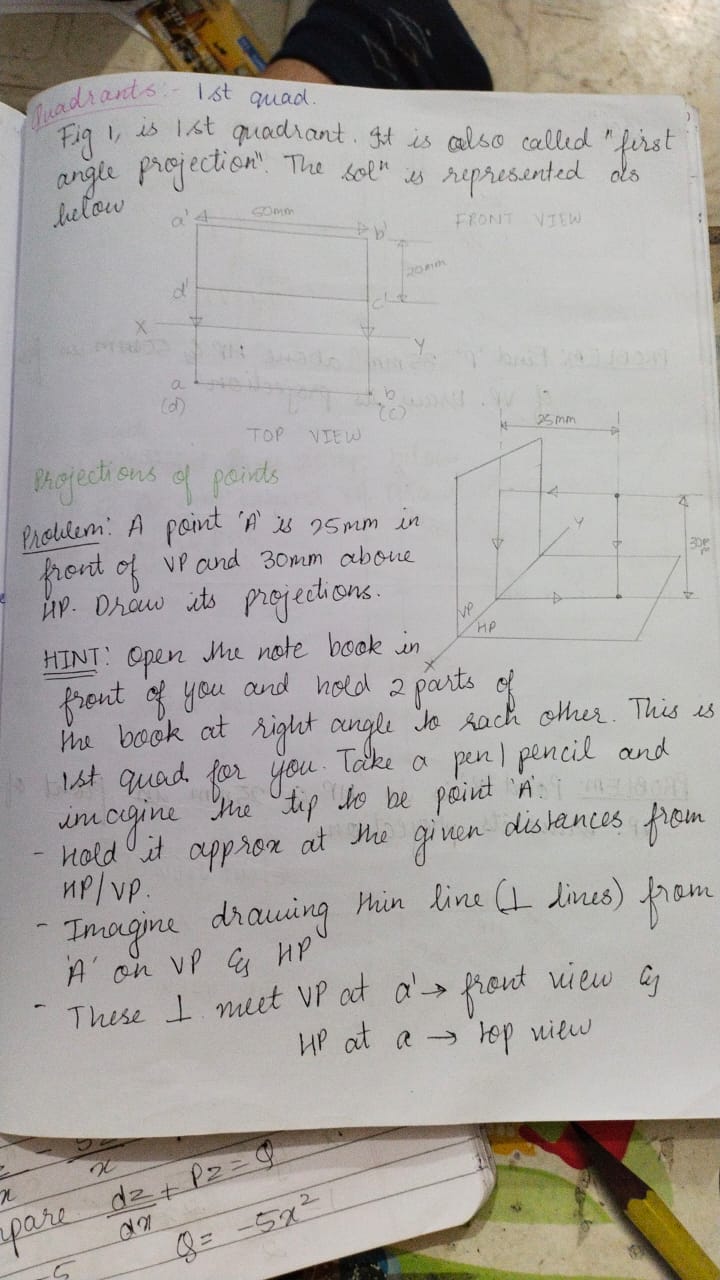 Quadrants:- 1st quad.
Fig 1, is 1st quadrant. It is also called "first
angle projection". The solⁿ is represented as
below
a' 60mm b' FRONT VIEW
20mm
d' c'
X Y
a b
(d) (c)
TOP VIEW
25mm
Projections of points
Problem: A point 'A' is 25mm in
front of VP and 30mm above
HP. Draw its projections.
Y
30mm
VP
HP
X
HINT: Open the note book in
front of you and hold 2 parts of
the book at right angle to each other. This is
1st quad for you. Take a pen/pencil and
imagine the tip to be point 'A'.
- Hold it approx at the given distances from
HP/VP.
- Imagine drawing thin line (⊥ lines) from
'A' on VP & HP
- These ⊥ meet VP at a' → front view &
HP at a → top view
x
dz/dx + Pz = Q
Q = -5x²